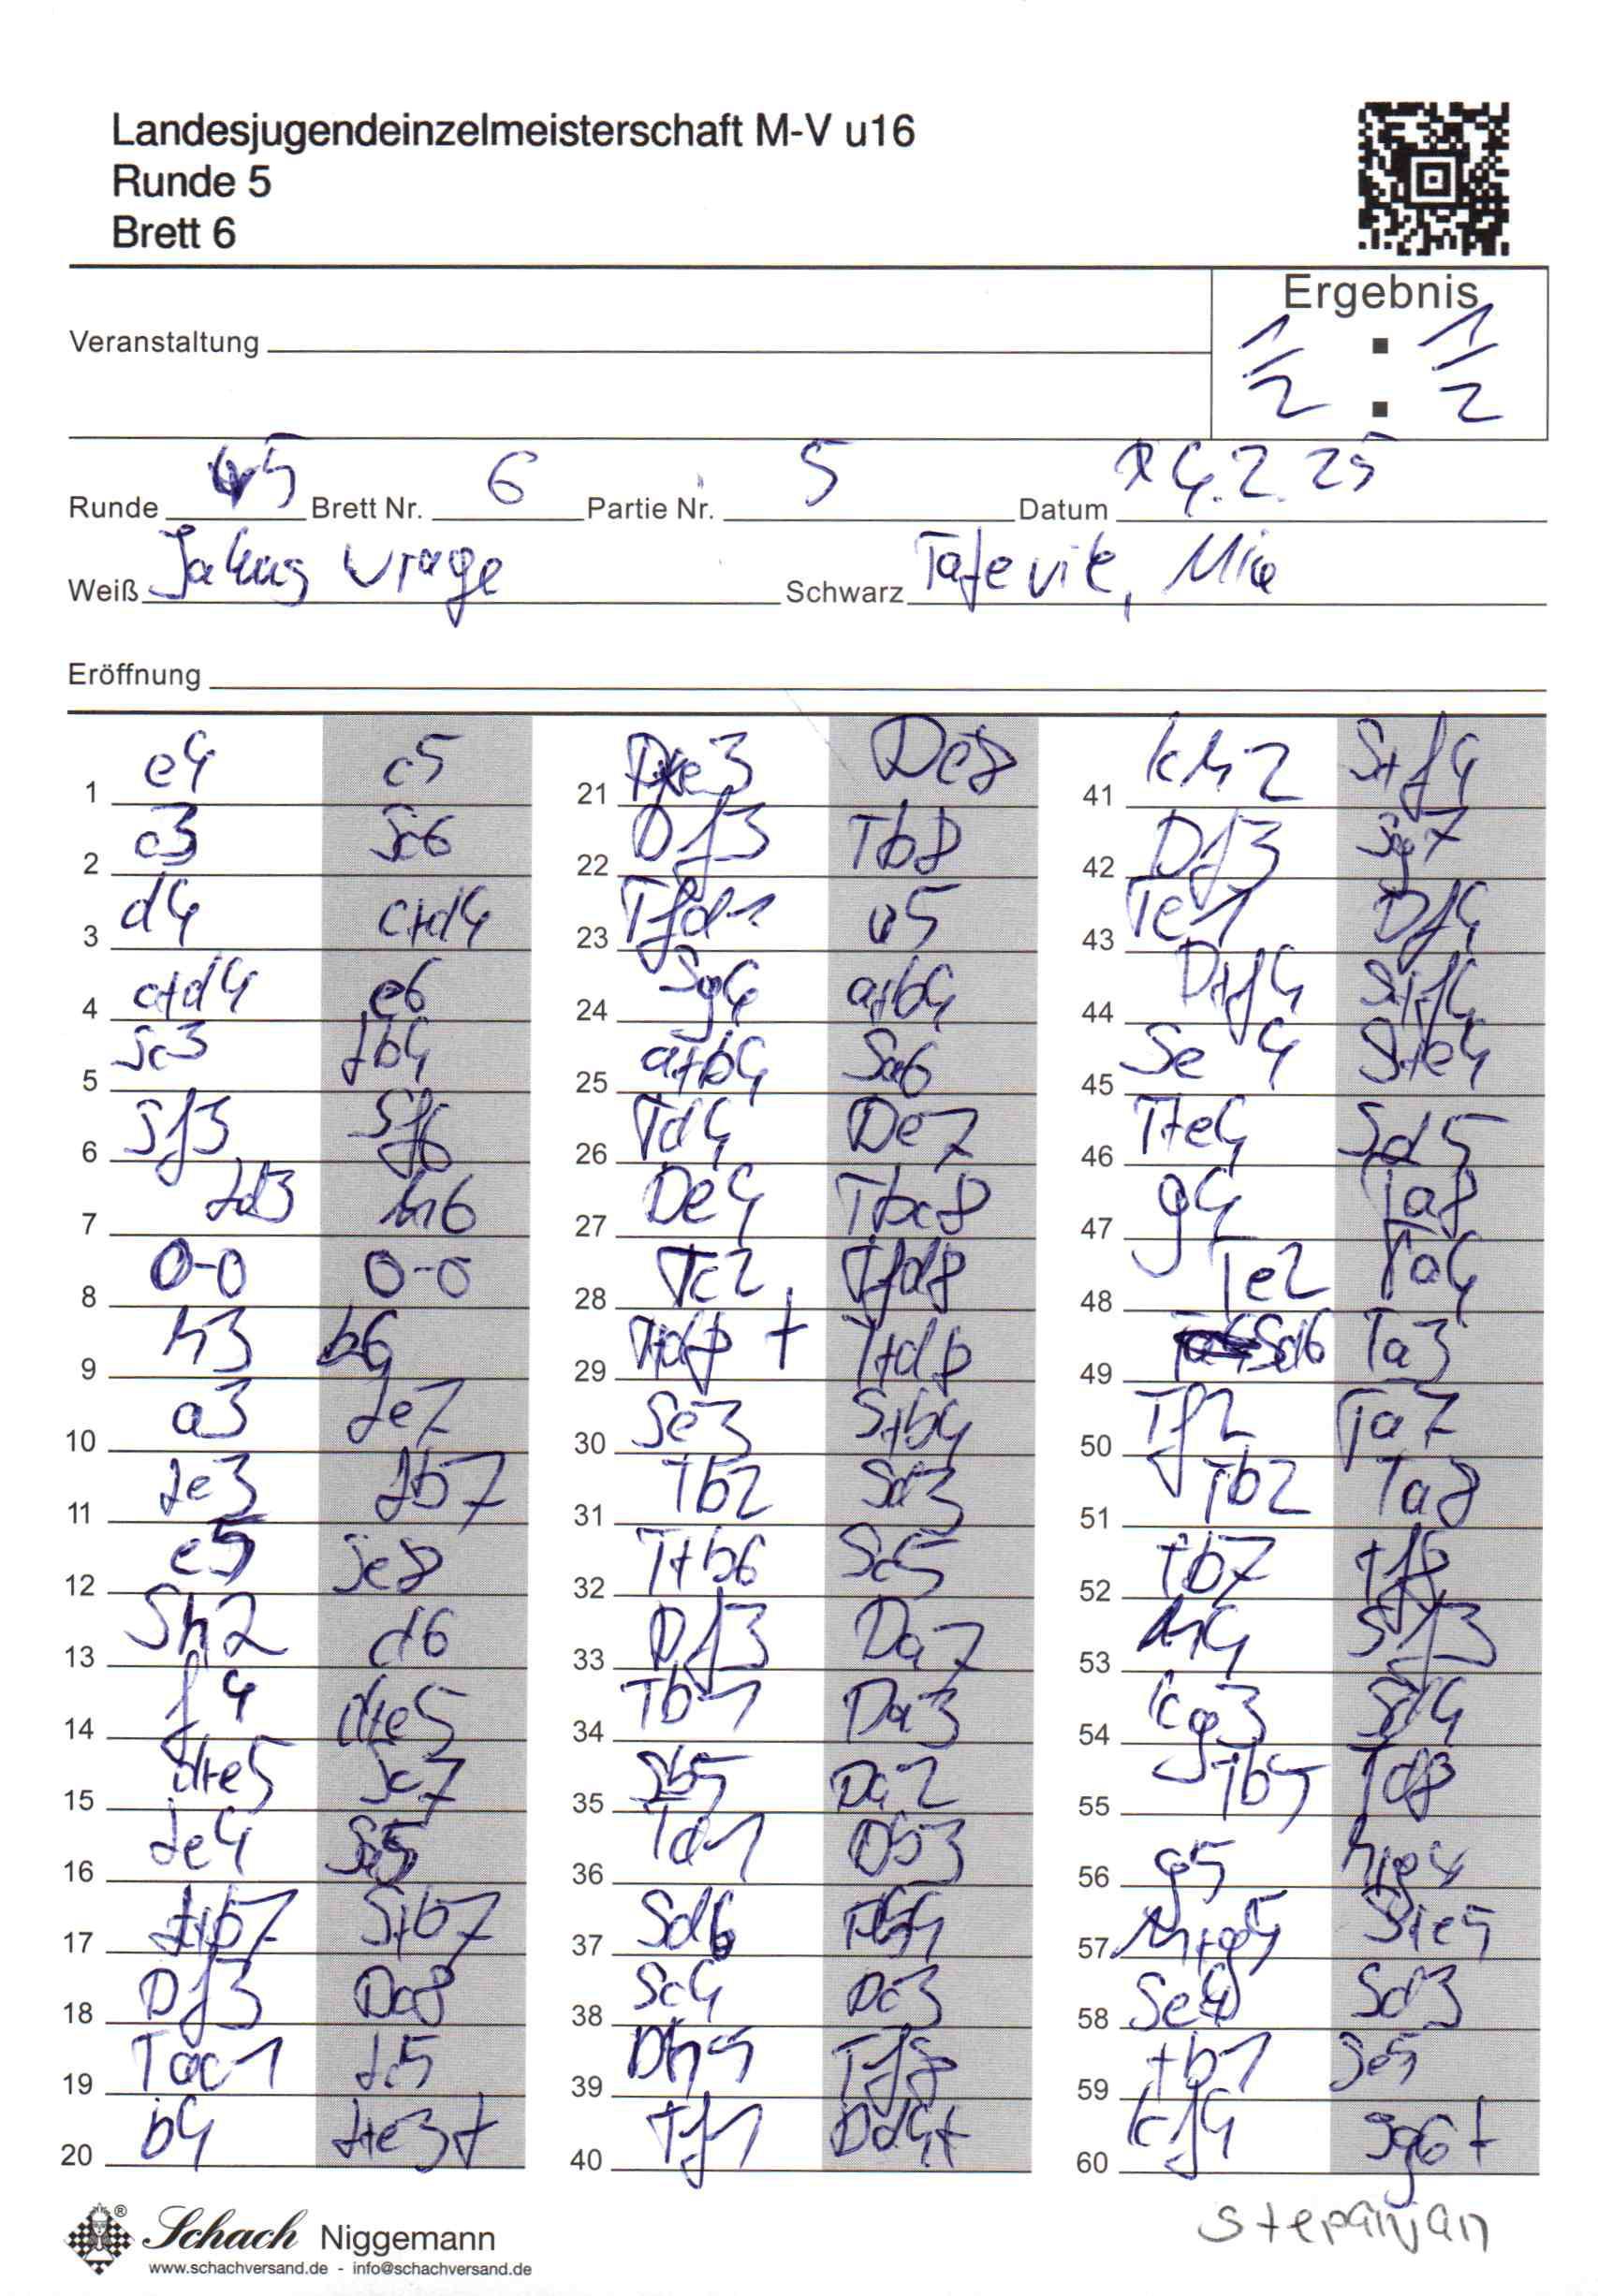 Landesjugendeinzelmeisterschaft M-V u16
Runde 5
Brett 6
Ergebnis
Veranstaltung
1/2 : 1/2
Runde 5 Brett Nr. 6 Partie Nr. 5 Datum 4.2.25
Weiß Schwarz Mia
Eröffnung
1 e4 c5
2 c3 Sc6
3 d4 c+d4
4 c+d4 e6
5 Sc3 Lb4
6 Sf3 Sf6
7 Ld3 h6
8 0-0 0-0
9 h3 b6
10 a3 Le7
11 Le3 Lb7
12 e5 Se8
13 Sh2 d6
14 f4 d+e5
15 d+e5 Sc7
16 Le4 Sa5
17 L+b7 S+b7
18 Df3 Dc8
19 Tac1 Lc5
20 b4 L+e3+
21 D+e3 Dc8
22 Df3 Tb8
23 Tfd1 a5
24 Sg4 a+b4
25 a+b4 Sa6
26 Td4 De7
27 De4 Tbc8
28 Tc2 Tfd8
29 T+d8+ T+d8
30 Se3 S+b4
31 Tb2 Sd3
32 T+b6 Sc5
33 Df3 Da7
34 Tb1 Da3
35 Sb5 Da2
36 Td1 Db3
37 Sd6
38 Sc4 Dc3
39 Dh5 Tf8
40 Tf1 Dd4+
41 Kh2 S+f4
42 Df3 Sg7
43 Te1 Df4
44 D+f4 S+f4
45 Se4 S+e4
46 T+e4 Sd5
47 g4 Ta8
48 Te2 Ta4
49 Sd6 Ta3
50 Tf2 Ta7
51 Tb2 Ta8
52 tb7 tf8
53 h4 Sf3
54 Kg3 Sd4
55 Tb5 Td8
56 g5
57 h+g5 S+e5
58 Se4 Sd3
59 tb1 Se5
60 Kf4 Sg6+
Stepanjan
Schach Niggemann
www.schachversand.de - info@schachversand.de